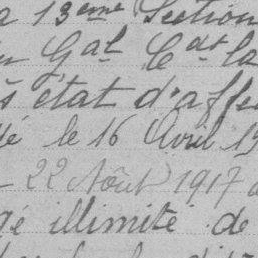 13ème Section
Gal Cdt la
état d'affe
le 16 Avril 19
22 Août 1917
illimité de